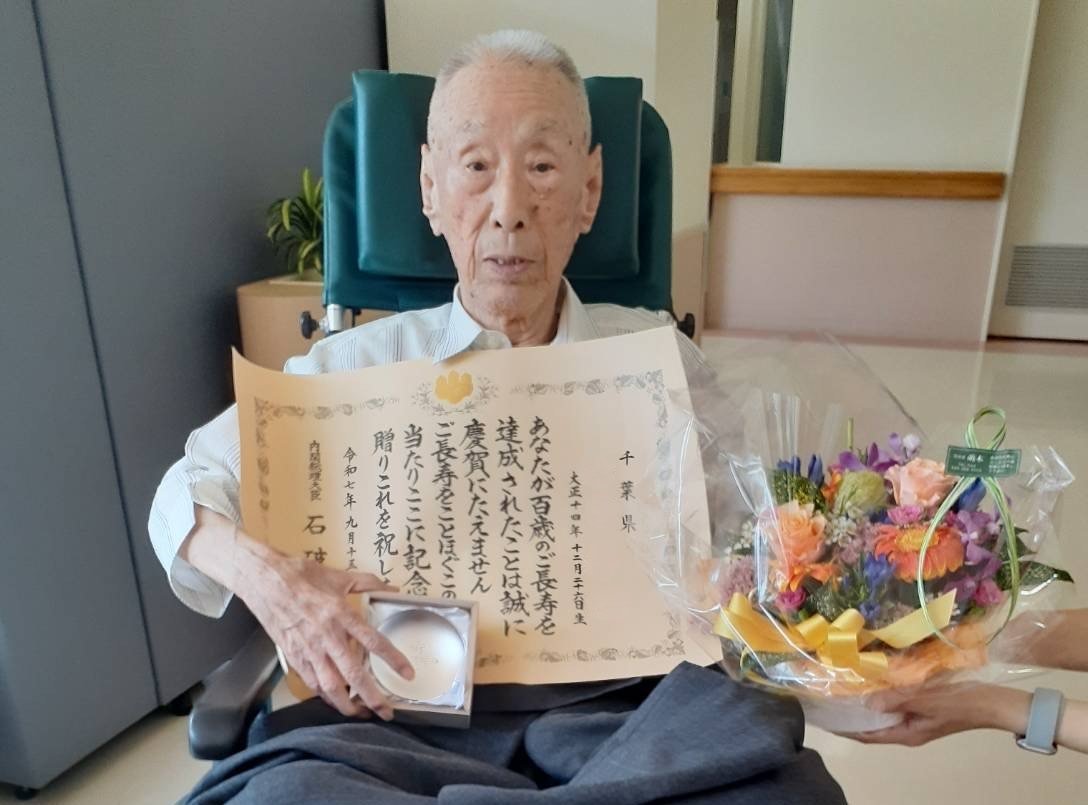 千葉県
大正十四年 十二月二十六日生
あなたが百歳のご長寿を
達成されたことは誠に
慶賀にたえません
ご長寿をことほぐこの
当たりここに記念
贈りこれを祝し
令和七年 九月十五
内閣総理大臣 石破